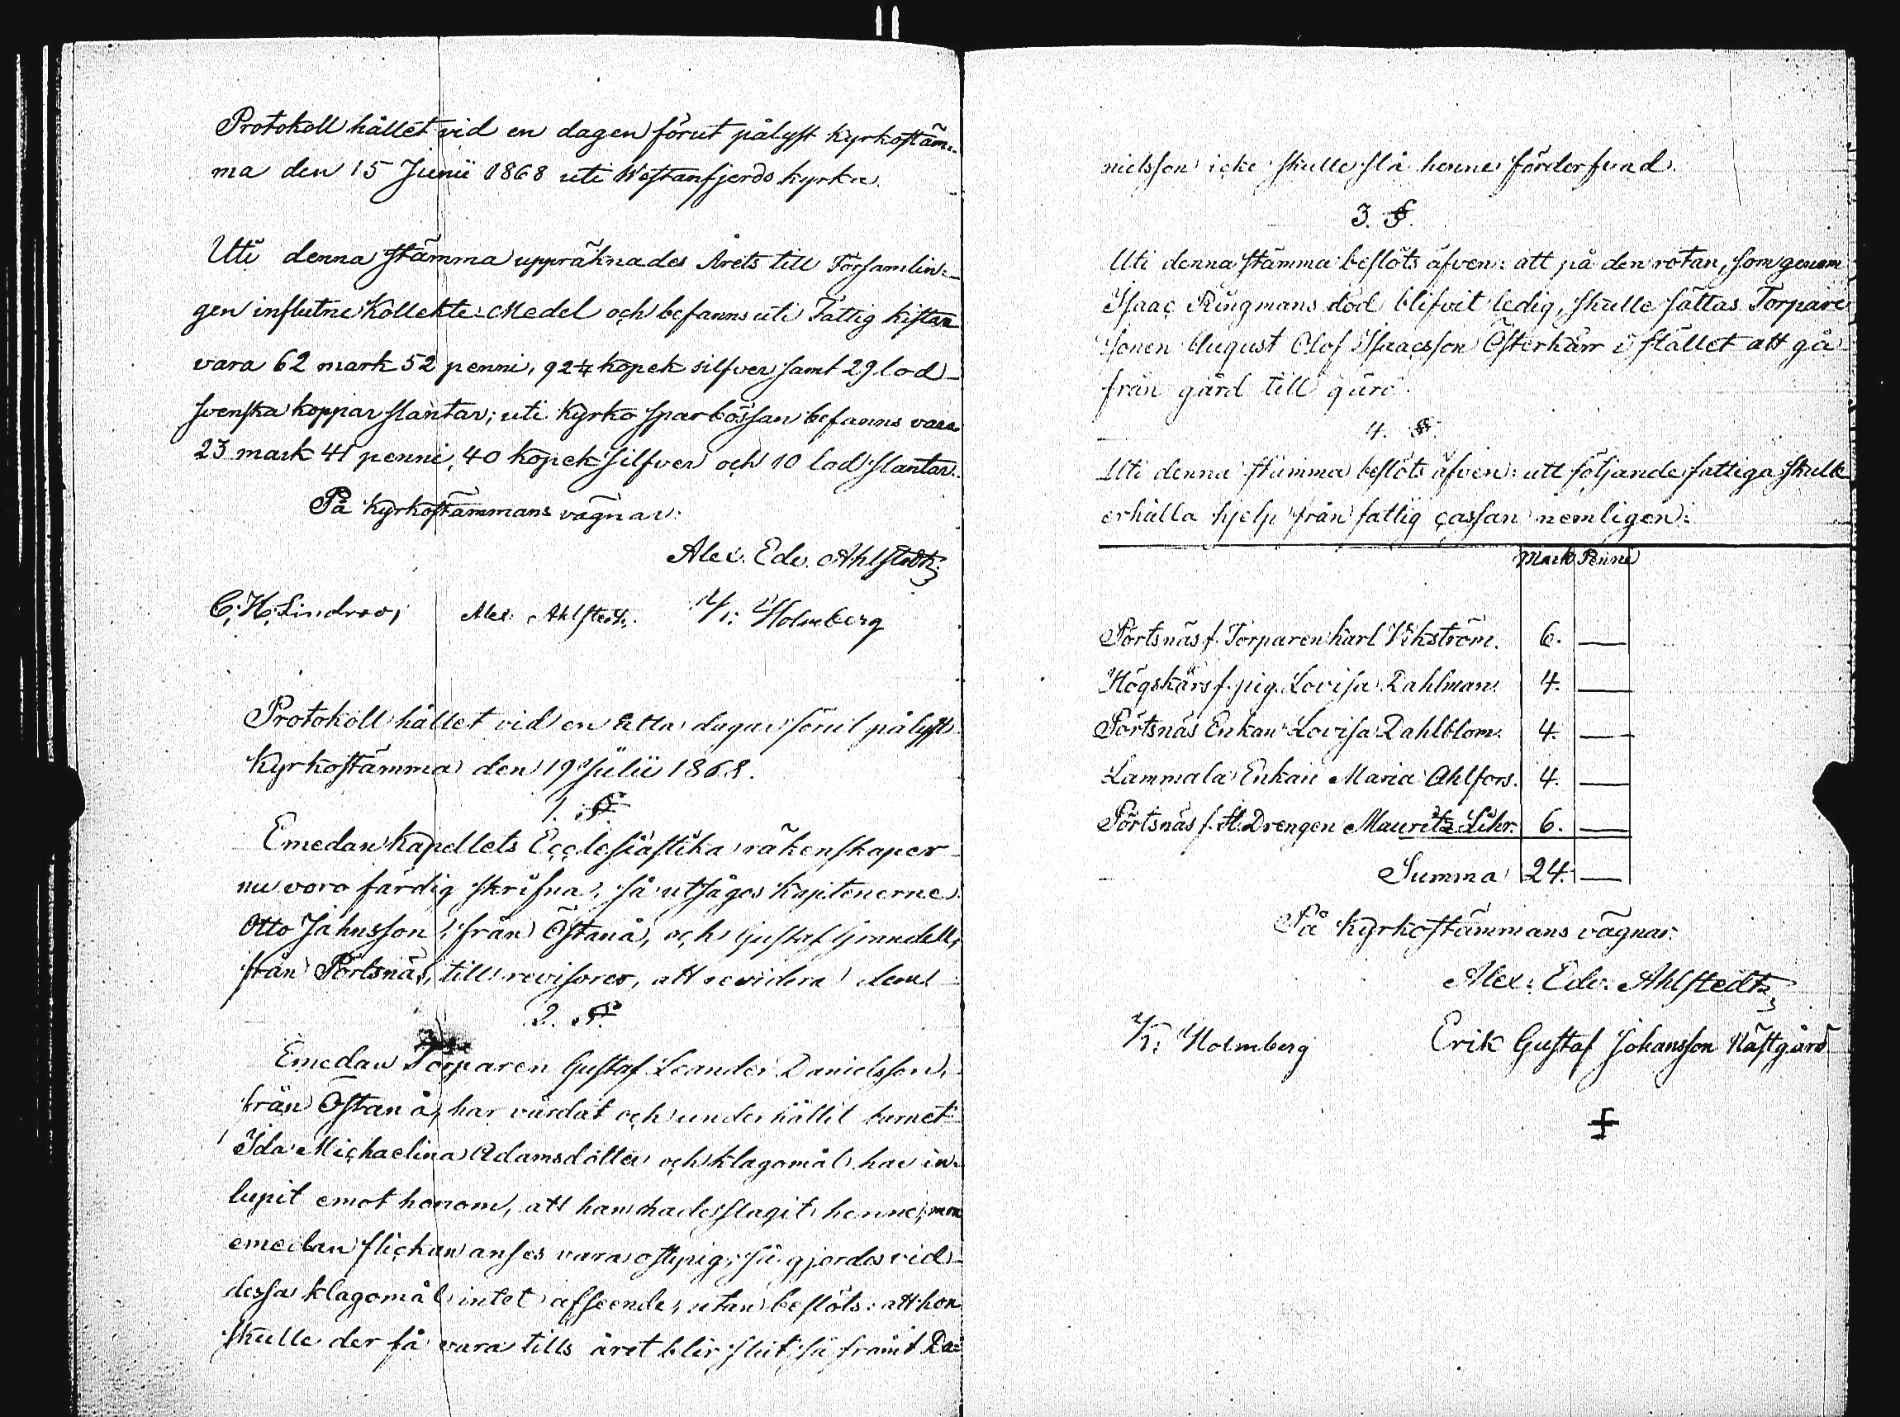 Protokoll hållet vid en dagen förut pålyst Kyrkostäm-
ma den 15 Junii 1868 uti Westanfjerds kyrka.
Uti denna stämma uppräknades Årets till Församlin-
gen influtne Kollekte-Medel och befanns uti Fattig kistan
vara 62 mark 52 penni, 92 4/7 kopek silfver samt 29 lod
svenska koppar slantar; uti Kyrko sparbössan befanns vara
23 mark 41 penni, 40 kopek silfver och 10 lod slantar.
På Kyrkostämmans vägnar:
Alex. Edv. Ahlstedt
C. H. Lindroos Alex. Ahlstedt. Holmberg
Protokoll hållet vid en åtta dagar förut pålyst
Kyrkostämma den 19 Julii 1868.
1. §.
Emedan Kapellets Ecclesiastika räkenskaper
nu voro färdig skrifna, så utsågos Kapitenerne
Otto Jahnsson, från Östanå, och Gustaf Grundell,
från Pörtsnäs, till revisorer, att revidera dem
2. §.
Emedan Torparen Gustaf Leander Danielsson,
från Östanå, har vårdat och underhållit barnet
Ida Michaelina Adamsdotter och klagomål har in-
lupit emot honom, att han hade slagit henne; men
emedan flickan anses vara ostyrig, så gjordes vid
dessa klagomål intet afseende, utan beslöts: att hon
skulle der få vara tills året blir slut, så framt Da-
nielsson icke skulle slå henne förderfvad.
3. §.
Uti denna stämma beslöts äfven: att på den rotan, som genom
Isaac Ringmans död blifvit ledig, skulle sättas Torpare
sonen August Olof Isaacsson Österkärr i stället att gå
från gård till gård.
4. §.
Uti denna stämma beslöts äfven: att följande fattiga skulle
erhålla hjelp från fattig cassan nemligen:
Mark Penni
Pörtsnäs f. Torparen Karl Vikström. 6. —
Högskärs f. pig. Lovisa Dahlman. 4. —
Pörtsnäs Enkan Lovisa Dahlblom. 4. —
Lammala Enkan Maria Ahlfors. 4. —
Pörtsnäs f. Drengen Mauritz 6. —
Summa 24. —
På Kyrkostämmans vägnar.
Alex. Edv. Ahlstedt
Holmberg Erik Gustaf Johansson Nästgård